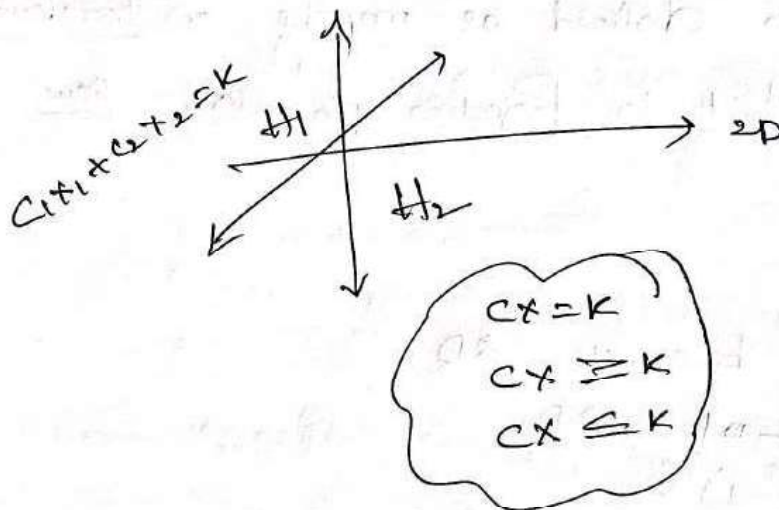 C₁x₁ + C₂x₂ = K
H₁
2D
H₂
CX = K
CX ≥ K
CX ≤ K